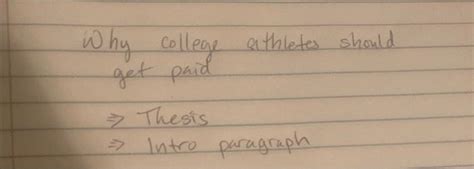 Why college athletes should
get paid
⇒ Thesis
⇒ Intro paragraph